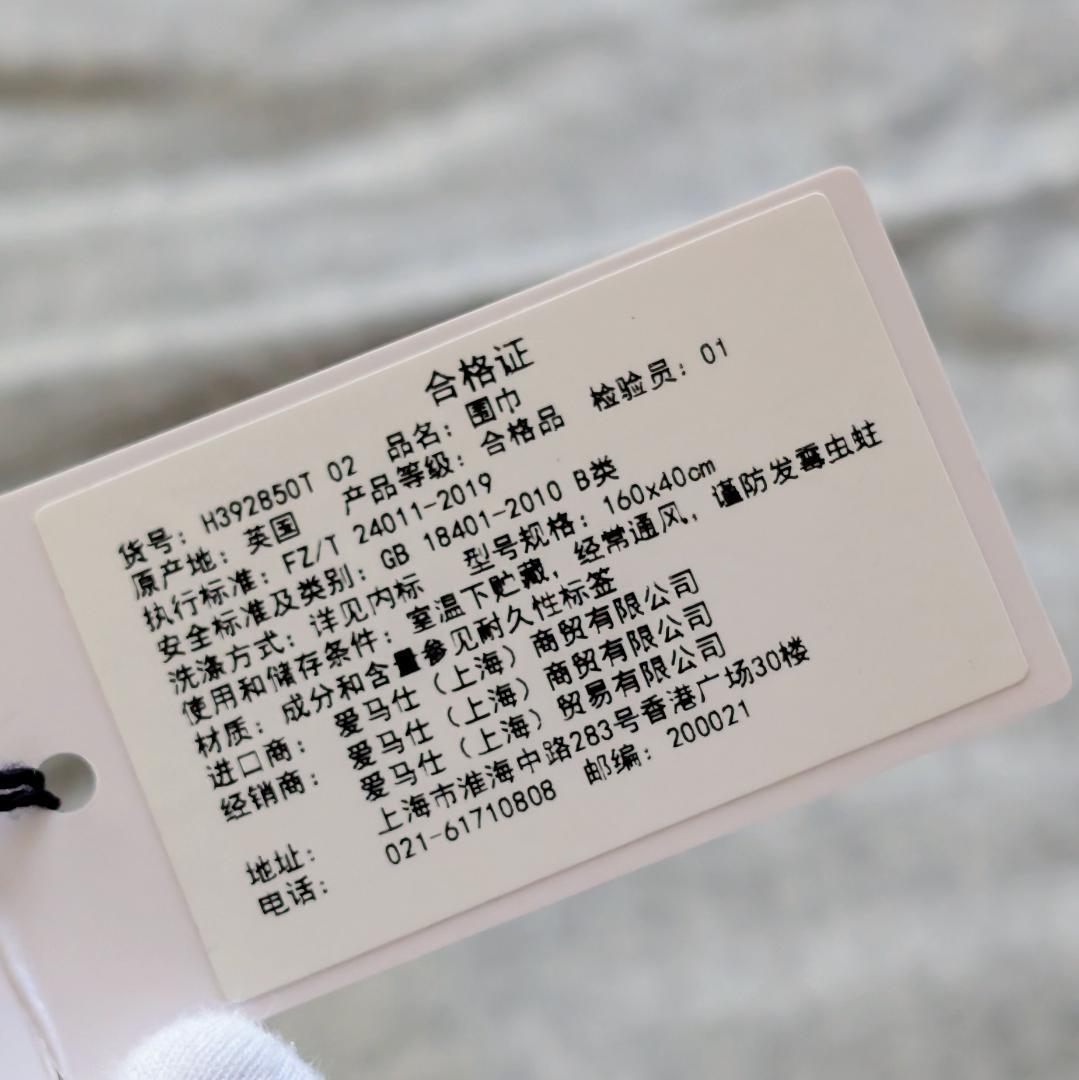 合格证
货号: H392850T 02 品名: 围巾
原产地: 英国 产品等级: 合格品 检验员: 01
执行标准: FZ/T 24011-2019
安全标准及类别: GB 18401-2010 B类
洗涤方式: 详见内标 型号规格: 160x40cm
使用和储存条件: 室温下贮藏, 经常通风, 谨防发霉虫蛀
材质: 成分和含量参见耐久性标签
进口商: 爱马仕 (上海) 商贸有限公司
经销商: 爱马仕 (上海) 商贸有限公司
爱马仕 (上海) 贸易有限公司
地址: 上海市淮海中路283号香港广场30楼
电话: 021-61710808 邮编: 200021